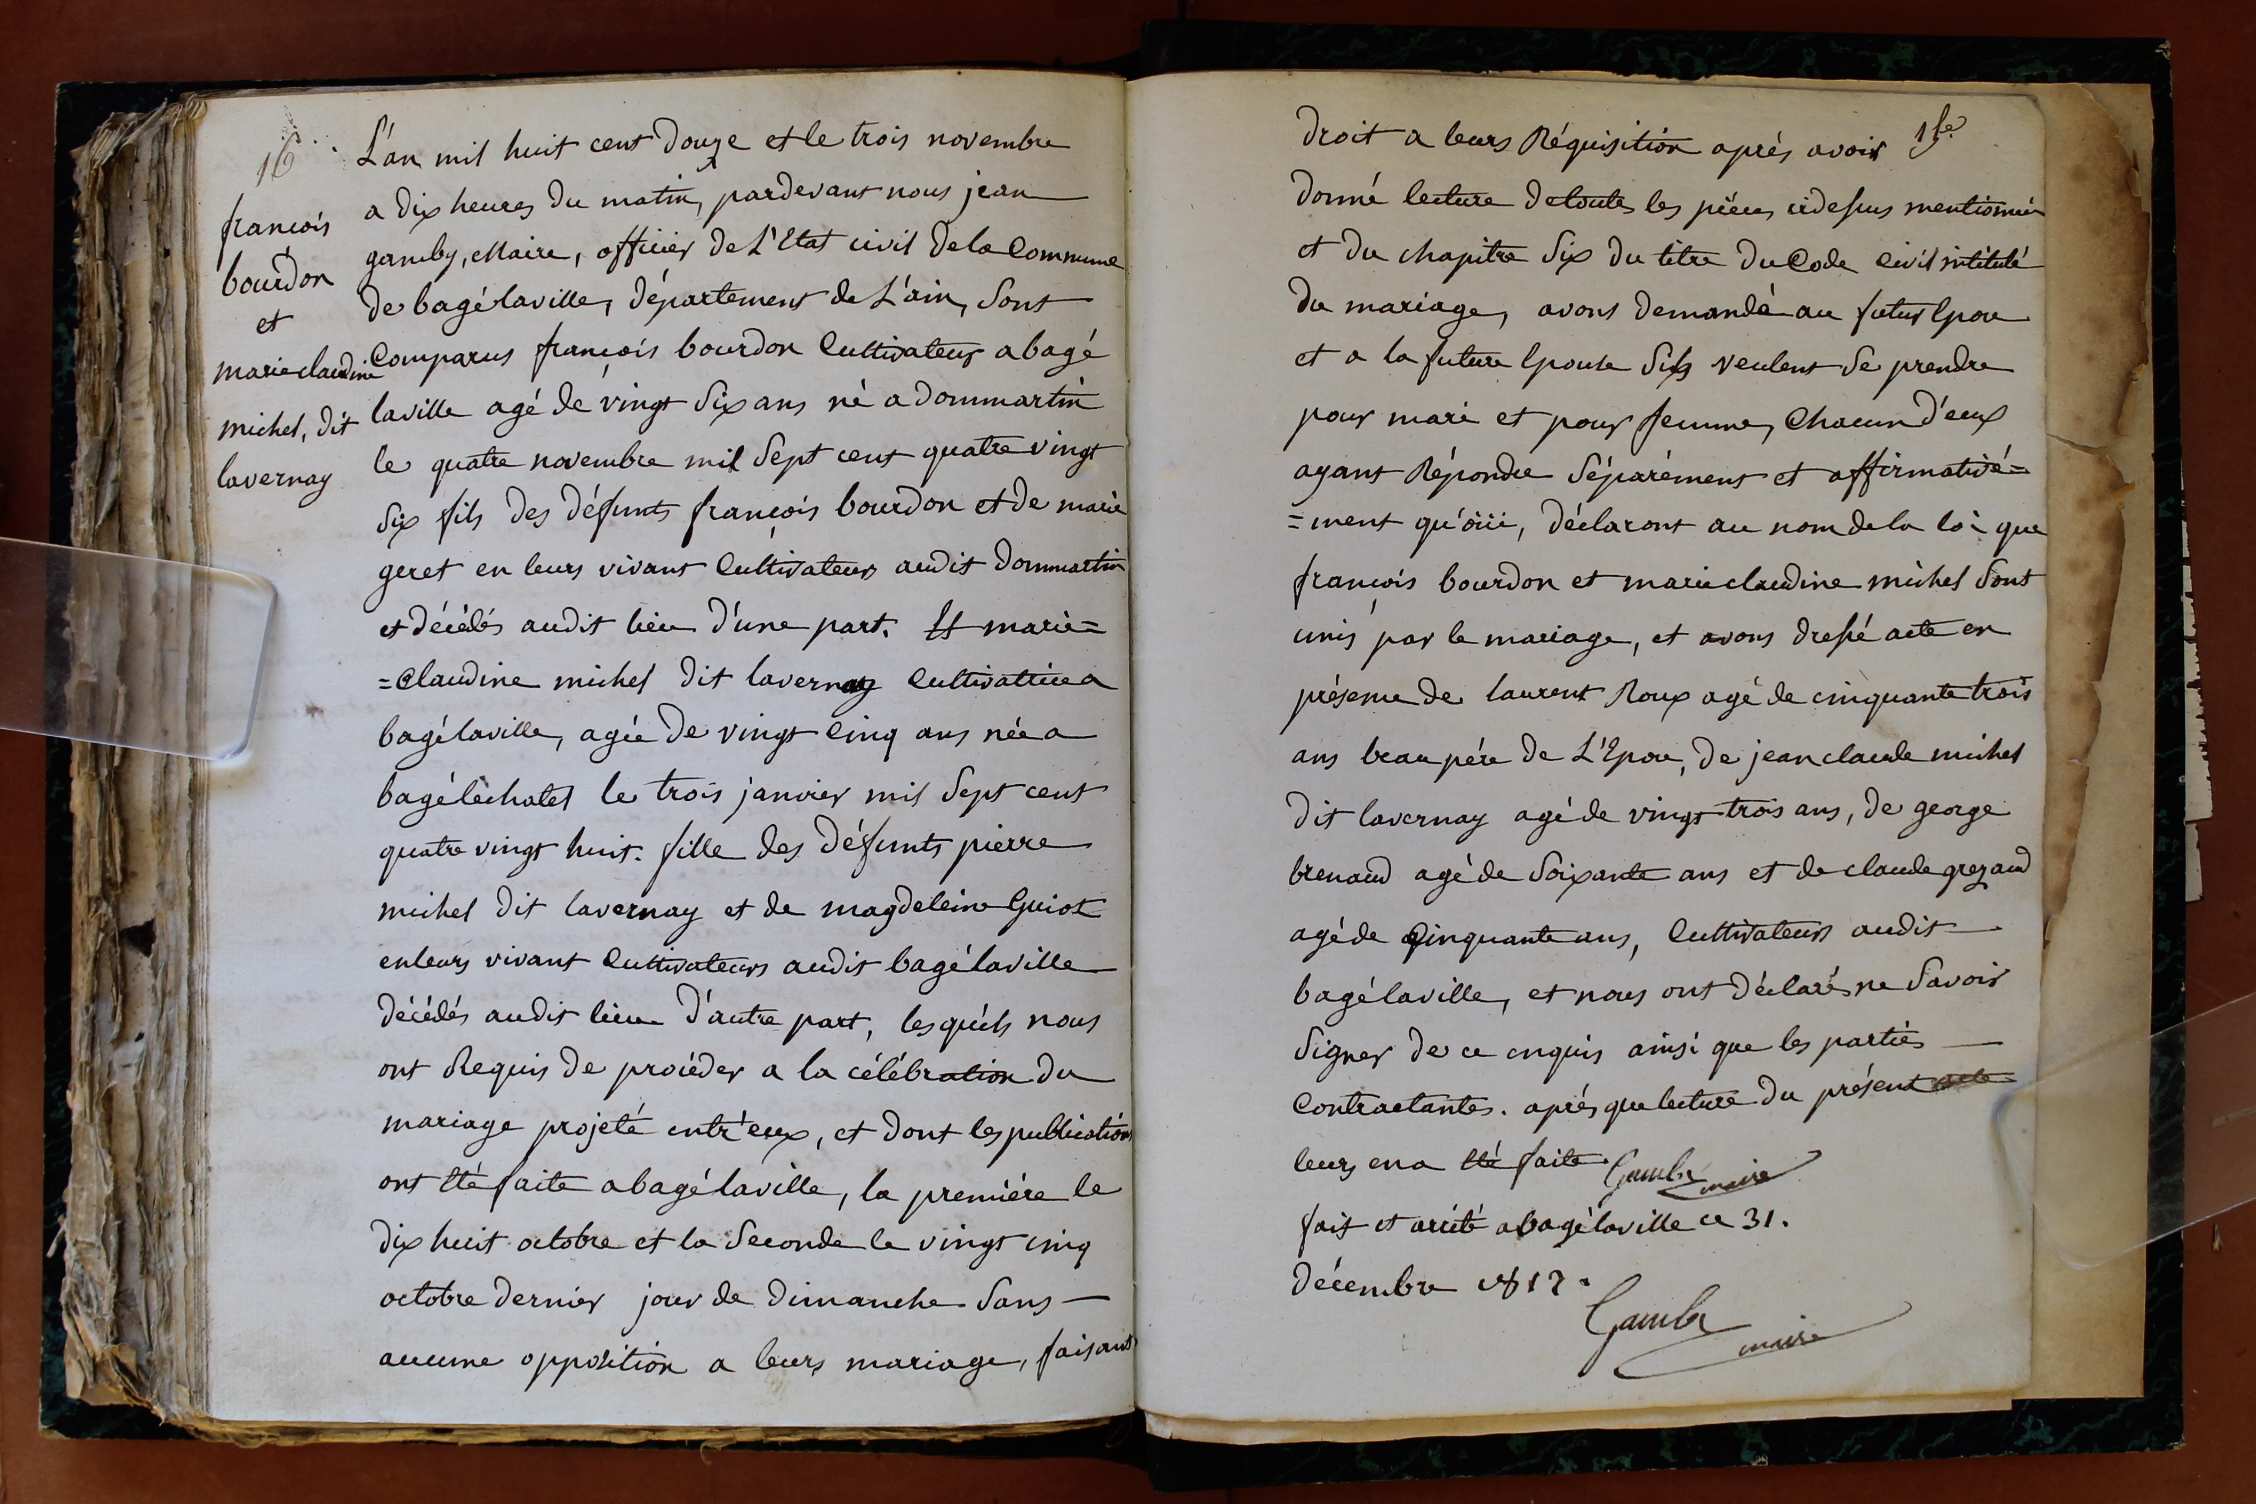 16
françois
bourdon
et
marie claudine
michel, dit
lavernay
L'an mil huit cent douze et le trois novembre
a dix heures du matin, pardevant nous jean
gamby, Maire, officier de L'Etat civil de la Commune
de bagélaville, département de L'ain, Sont
Comparus françois bourdon Cultivateur a bagé
laville agé de vingt Six ans né a dommartin
le quatre novembre mil Sept cent quatre vingt
Six fils des défunts françois bourdon et de marie
geret en leurs vivant Cultivateurs audit dommartin
et décédés audit lieu d'une part. Et marie=
=Claudine michel dit lavernay Cultivatrice a
bagélaville, agée de vingt Cinq ans née a
bagélechatel le trois janvier mil Sept cent
quatre vingt huit. fille des défunts pierre
michel dit lavernay et de magdeleine Guiot
enleurs vivant Cultivateurs audit bagélaville
décédés audit lieu d'autre part, lesquels nous
ont Requis de procéder a la célébration du
mariage projeté entr'eux, et dont les publications
ont Eté faite a bagélaville, la première le
dix huit octobre et la Seconde le vingt cinq
octobre dernier jour de dimanche Sans —
aucune opposition a leurs mariage, faisant
droit a leurs Réquisition aprés avoir
donné lecture detoutes les piéces cidessus mentionnées
et du chapitre Six du titre du Code Civil intitulé
du mariage, avons demandé au futur Epou
et a la future Epouse Sils veulent Se prendre
pour mari et pour femme, Chacun d'eux
ayant Répondu Séparément et affirmativé=
=ment qu'oüi, déclarons au nom de la loi que
françois bourdon et marie claudine michel Sont
unis par le mariage, et avons dressé acte en
présence de laurent Roux agé de cinquante trois
ans beau pére de L'Epou, de jean claude michel
dit lavernay agé de vingt trois ans, de george
brenaud agé de Soixante ans et de claude grezaud
agé de Cinquante ans, Cultivateurs audit
bagélaville, et nous ont déclarés ne Savoir
Signer de ce enquis ainsi que les parties —
Contractantes. aprés que lecture du présent acte
leurs en a Eté faite. Gamby maire
fait et arrêté a bagélaville ce 31.
décembre 1812.
Gamby
maire